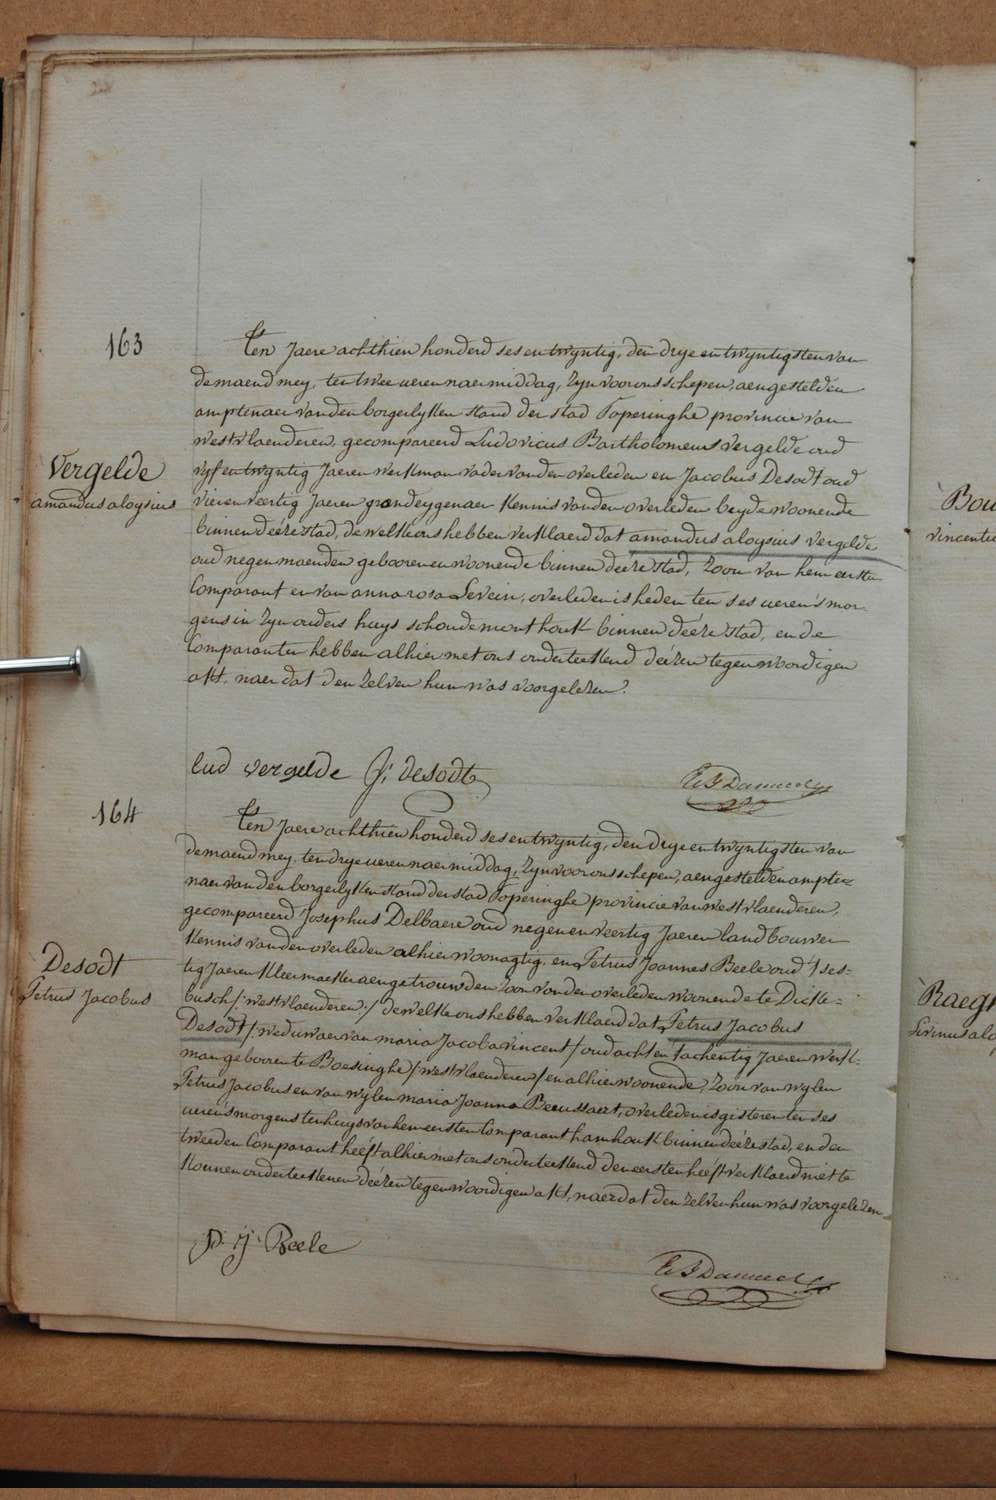 163
Ten Jaere achthien honderd sesentwyntig, den drye entwyntigsten van
de maend mey, ten twee ueren naermiddag, Zyn voor ons schepen, aengestelden
amptenaer vanden borgerlyken stand der stad Poperinghe provincie van
westvlaenderen, gecompareerd Ludovicus Bartholomeus vergelde oud
Vergelde
vyf entwyntig Jaeren werkman vader vanden overleden en Jacobus Desodt oud
amandus aloysius
vier en veertig Jaeren grondeygenaer kennis vanden overleden beyde woonende
binnen deéze stad, de welke ons hebben verklaerd dat amandus aloysius vergelde
oud negen maenden gebooren en woonende binnen deéze stad, Zoon van hem eersten
Comparant en van anna rosa Levein, overleden is heden ten ses ueren s'mor-
gens in Zyn ouders huys schoudemonthouk binnen deéze stad, en de
Comparanten hebben alhier met ons onderteekend deézen tegenwoordigen
akt, naer dat den zelven hun was voorgelezen.
Lud vergelde J: desodt
164
Ten Jaere achthien honderd sesentwyntig, den drye entwyntigsten van
de maend mey, ten drye ueren naermiddag, Zyn voor ons schepen, aengestelden ampte-
naer van den borgerlyken stand der stad Poperinghe provincie van westvlaenderen,
gecompareerd Josephus Delbaere oud negen en veertig Jaeren landbouwer
kennis vanden overleden alhier woonagtig, en Petrus Joannes Beele oud t'ses-
Desodt
tig Jaeren kleermaeker aengetrouwden Zoon van den overleden woonende te Dicke-
Petrus Jacobus
busch /: westvlaenderen :/ de welke ons hebben verklaerd dat Petrus Jacobus
Desodt /: weduwaer van maria Jacoba vincent :/ oud acht en tachentig Jaeren werk-
man gebooren te Boesinghe /: westvlaenderen :/ en alhier woonende, Zoon van wylen
Petrus Jacobus en van wylen maria Joanna Beeussaert, overleden is gisteren ten ses
ueren s'morgens ten huys van hem eersten Comparant hamhouk binnen deéze stad, en den
tweeden Comparant heéft alhier met ons onderteekend den eersten heéft verklaerd niet te
konnen onderteekenen deézen tegenwoordigen akt, naer dat den zelven hun was voorgelezen
P: J: Beele
Bou
vincentiu
Raegh